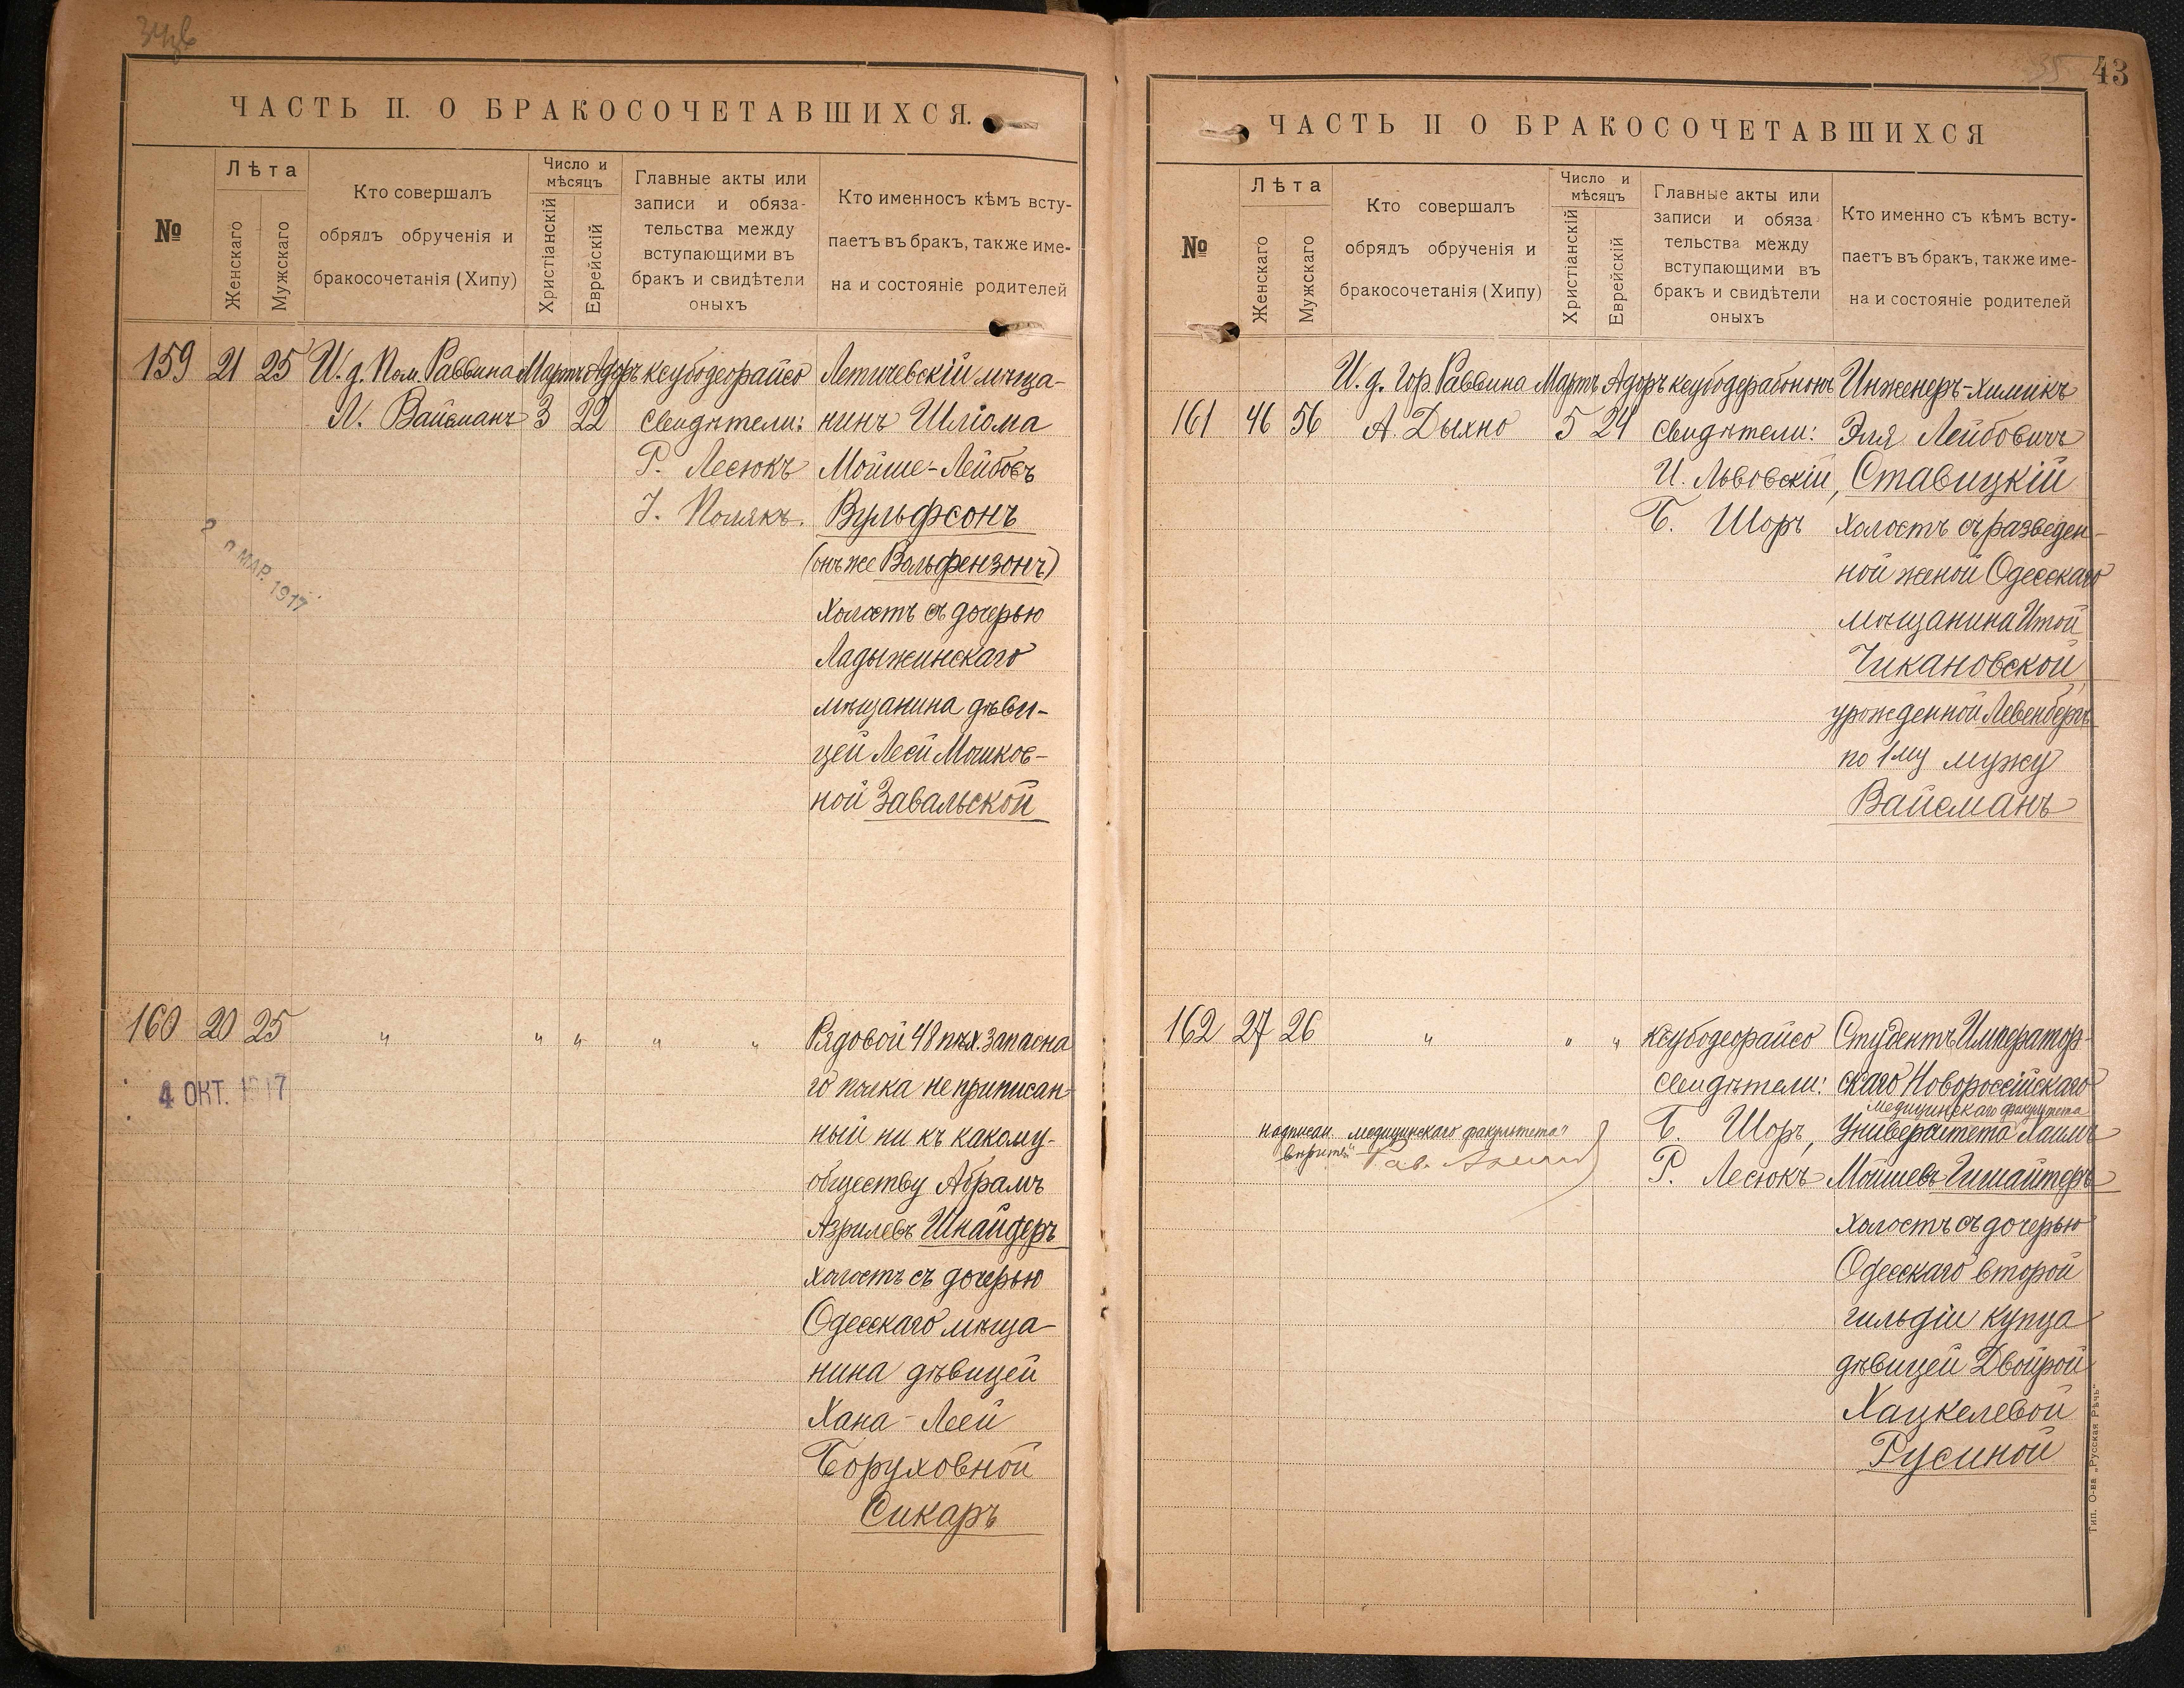 ЧАСТЬ II. О БРАКОСОЧЕТАВШИХСЯ.
№
Лѣта
Женскаго
Мужскаго
Кто совершалъ
обрядъ обрученія и
бракосочетанія (Хипу)
Число и
мѣсяцъ
Христіанскій
Еврейскій
Главные акты или
записи и обяза-
тельства между
вступающими въ
бракъ и свидѣтели
оныхъ
Кто именносъ кѣмъ всту-
паетъ въ бракъ, также име-
на и состояніе родителей
159 21 25 И. д. Пом. Раввина Мартъ Адоръ ксубодеорайсо Летичевскій мѣща-
Л. Вайсманъ 3 22 свидѣтели: нинъ Шліома
Р. Лесюкъ Мойше-Лейбовъ
І. Полякъ. Вульфсонъ
(онъ же Вольфензонъ)
холостъ съ дочерью
Ладыжинскаго
мѣщанина дѣви-
цей Леей Мошков-
ной Завальской
МАР. 1917
160 20 25 " " " " " Рядовой 48 пѣх. запасна
го полка не приписан-
ный ни къ какому-
обществу Абрамъ
Азрилевъ Шнайдеръ
холостъ съ дочерью
Одесскаго мѣща-
нина дѣвицей
Хана-Леей
Боруховной
Сикаръ
4 ОКТ. 1917
43
35
ЧАСТЬ II О БРАКОСОЧЕТАВШИХСЯ
№
Лѣта
Женскаго
Мужскаго
Кто совершалъ
обрядъ обрученія и
бракосочетанія (Хипу)
Число и
мѣсяцъ
Христіанскій
Еврейскій
Главные акты или
записи и обяза
тельства между
вступающими въ
бракъ и свидѣтели
оныхъ
Кто именно съ кѣмъ всту-
паетъ въ бракъ, также име-
на и состояніе родителей
И. д. Гор. Раввина Мартъ Адоръ ксубодерабононъ Инженеръ-химикъ
161 46 56 А. Дыхно 5 24 свидѣтели: Эля Лейбовичъ
И. Львовскій, Ставицкій
Б. Шоръ холостъ съ разведен-
ной женой Одесскаго
мѣщанина Итой
Чикановской,
урожденной Левенбергъ
по 1му мужу
Вайсманъ
162 27 26 " " " ксубодеорайсо Студентъ Император-
свидѣтели: скаго Новороссійскаго
медицинскаго факультета
Б. Шоръ, Университета Хаимъ
Р. Лесюкъ Мойшевъ Гимайтеръ
холостъ съ дочерью
Одесскаго второй
гильдіи купца
дѣвицей Двойрой
Хацкелевой
Русиной
надписан. „медицинскаго факультета"
Тип. О-ва „Русская Рѣчь"